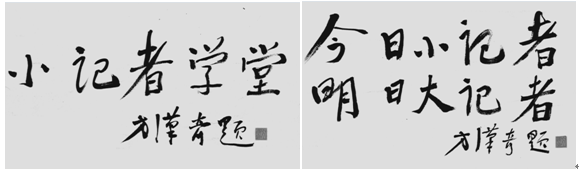 小记者学堂
方汉奇题
今日小记者
明日大记者
方汉奇题